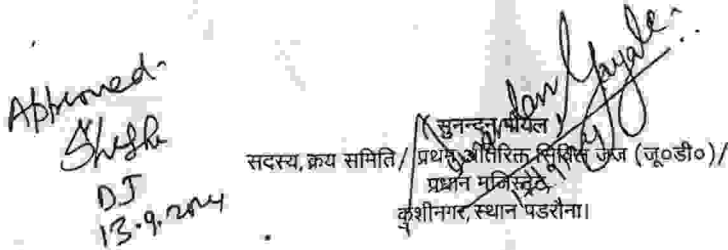 Approved
DJ
13.9.2024
(सुनन्दन
सदस्य, क्रय समिति / प्रथम अतिरिक्त सिविल जज (जू०डी०)/
प्रधान मजिस्ट्रेट,
कुशीनगर, स्थान पडरौना।